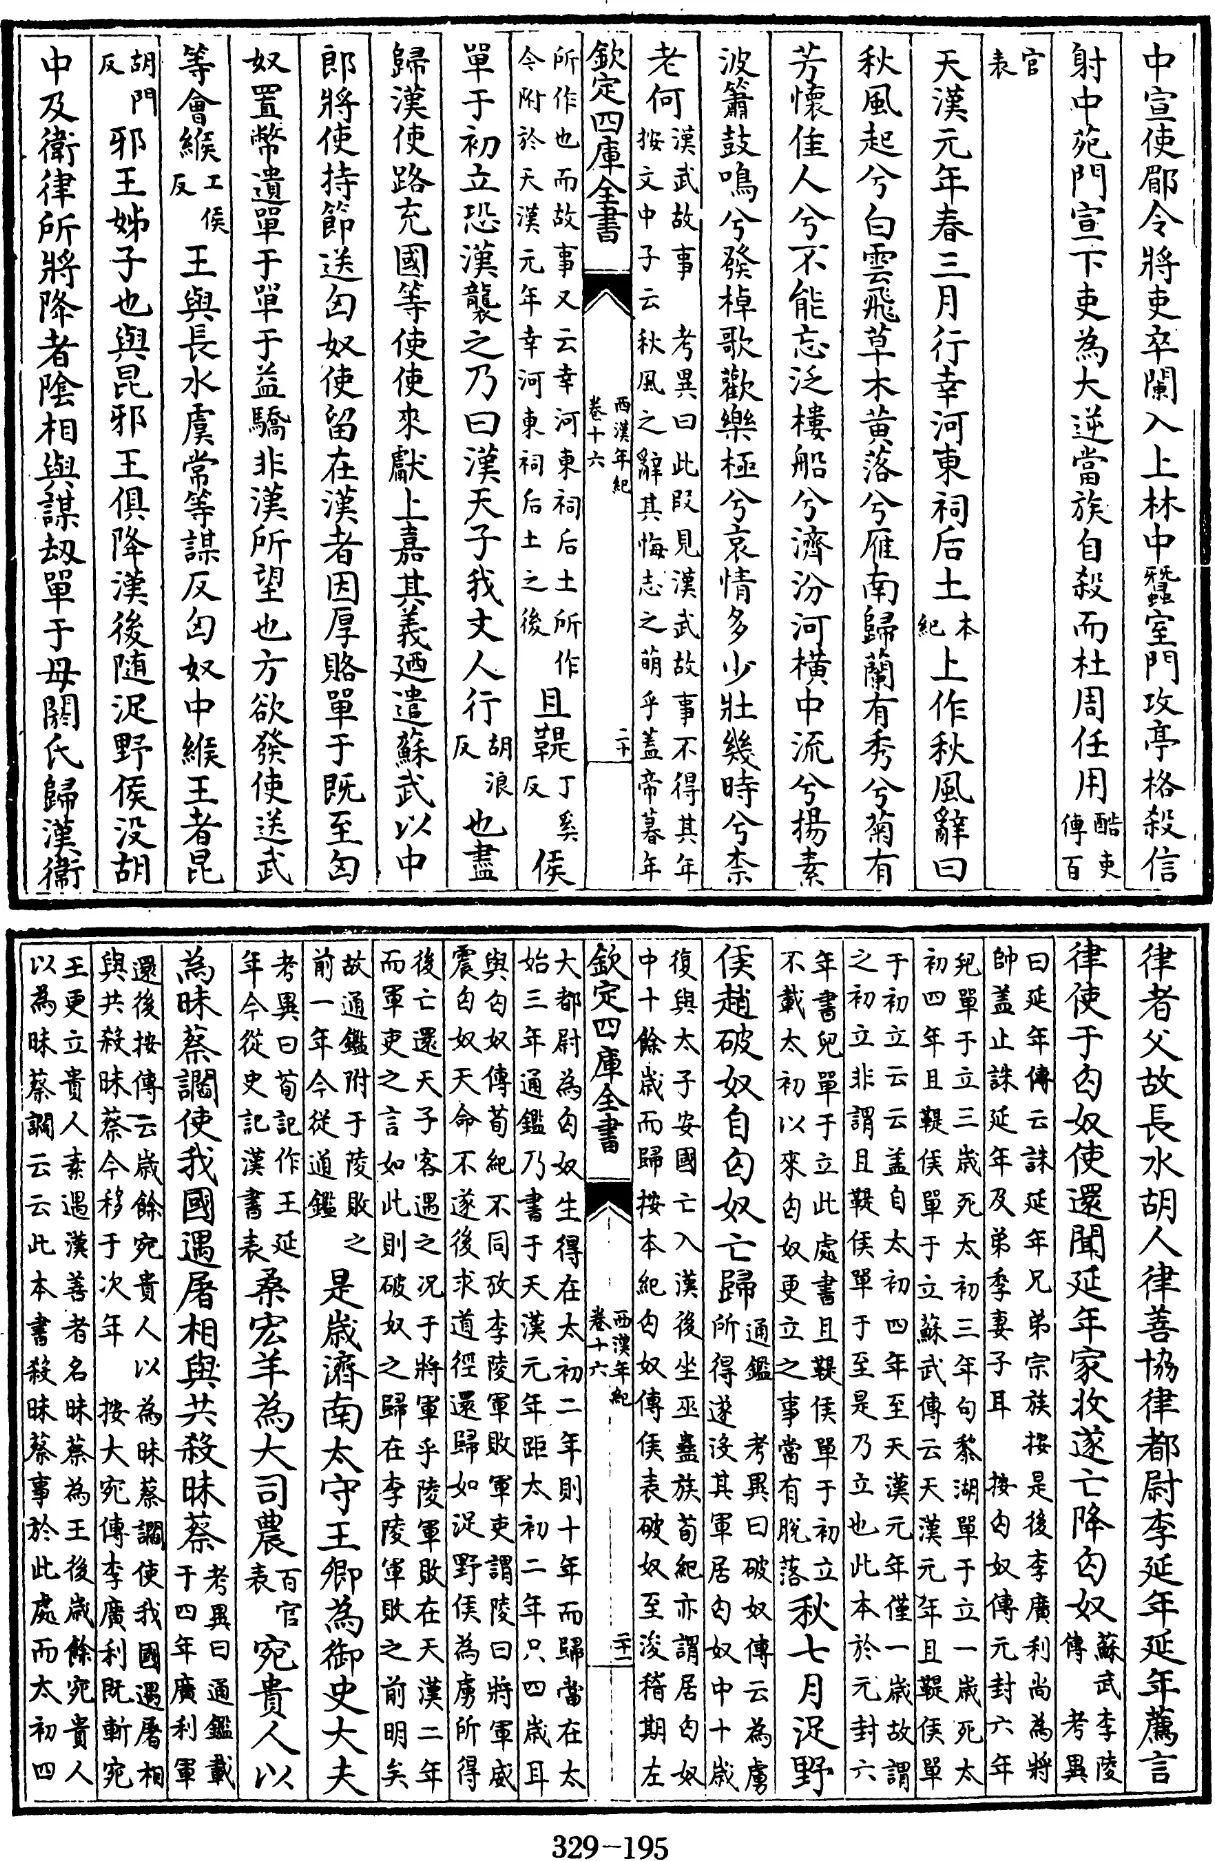 中宣使郿令將吏卒闌入上林中蠶室門攻亭格殺信
射中苑門宣下吏為大逆當族自殺而杜周任用酷吏傳百
官表
天漢元年春三月行幸河東祠后土本紀上作秋風辭曰
秋風起兮白雲飛草木黄落兮雁南歸蘭有秀兮菊有
芳懷佳人兮不能忘泛樓船兮濟汾河橫中流兮揚素
波簫鼓鳴兮發棹歌歡樂極兮哀情多少壯幾時兮柰
老何漢武故事 考異曰此段見漢武故事不得其年按文中子云秋風之辭其悔志之萌乎蓋帝暮年
欽定四庫全書 西漢年紀 卷十六 二十
所作也而故事又云幸河東祠后土所作今附於天漢元年幸河東祠后土之後且鞮丁奚反侯
單于初立恐漢襲之乃曰漢天子我丈人行胡浪反也盡
歸漢使路充國等使使來獻上嘉其義廼遣蘇武以中
郎將使持節送匈奴使留在漢者因厚賂單于既至匈
奴置幣遺單于單于益驕非漢所望也方欲發使送武
等會緱工侯反王與長水虞常等謀反匈奴中緱王者昆
胡門反邪王姊子也與昆邪王俱降漢後随浞野侯没胡
中及衛律所將降者陰相與謀劫單于母閼氏歸漢衞
律者父故長水胡人律善協律都尉李延年延年薦言
律使于匈奴使還聞延年家收遂亡降匈奴蘇武李陵傳 考異
曰延年傳云誅延年兄弟宗族按是後李廣利尚為將帥盖止誅延年及弟季妻子耳 按匈奴傳元封六年
兒單于立三歲死太初三年句黎湖單于立一歲死太初四年且鞮侯單于立蘇武傳云天漢元年且鞮侯單
于初立云云盖自太初四年至天漢元年僅一歲故謂之初立非謂且鞮侯單于至是乃立也此本於元封六
年書兒單于立此處書且鞮侯單于初立不載太初以來匈奴更立之事當有脫落秋七月浞野
侯趙破奴自匈奴亡歸通鑑 考異曰破奴傳云為虜所得遂没其軍居匈奴中十歲
復與太子安國亡入漢後坐巫蠱族荀紀亦謂居匈奴中十餘歲而歸按本紀匈奴傳侯表破奴至浚稽期左
欽定四庫全書 西漢年紀 卷十六 二十一
大都尉為匈奴生得在太初二年則十年而歸當在太始三年通鑑乃書于天漢元年距太初二年只四歲耳
與匈奴傳荀紀不同攷李陵軍敗軍吏謂陵曰將軍威震匈奴天命不遂後求道徑還歸如浞野侯為虜所得
後亡還天子客遇之况于將軍乎陵軍敗在天漢二年而軍吏之言如此則破奴之歸在李陵軍敗之前明矣
故通鑑附于陵敗之前一年今從通鑑是歲濟南太守王卿為御史大夫
考異曰荀記作王延年今從史記漢書表桑宏羊為大司農百官表宛貴人以
為昧蔡讇使我國遇屠相與共殺昧蔡考異曰通鑑載于四年廣利軍
還後按傳云歲餘宛貴人以為昧蔡讇使我國遇屠相與共殺昧蔡今移于次年 按大宛傳李廣利既斬宛
王更立貴人素遇漢善者名昧蔡為王後歲餘宛貴人以為昧蔡讇云云此本書殺昧蔡事於此處而太初四
329-195